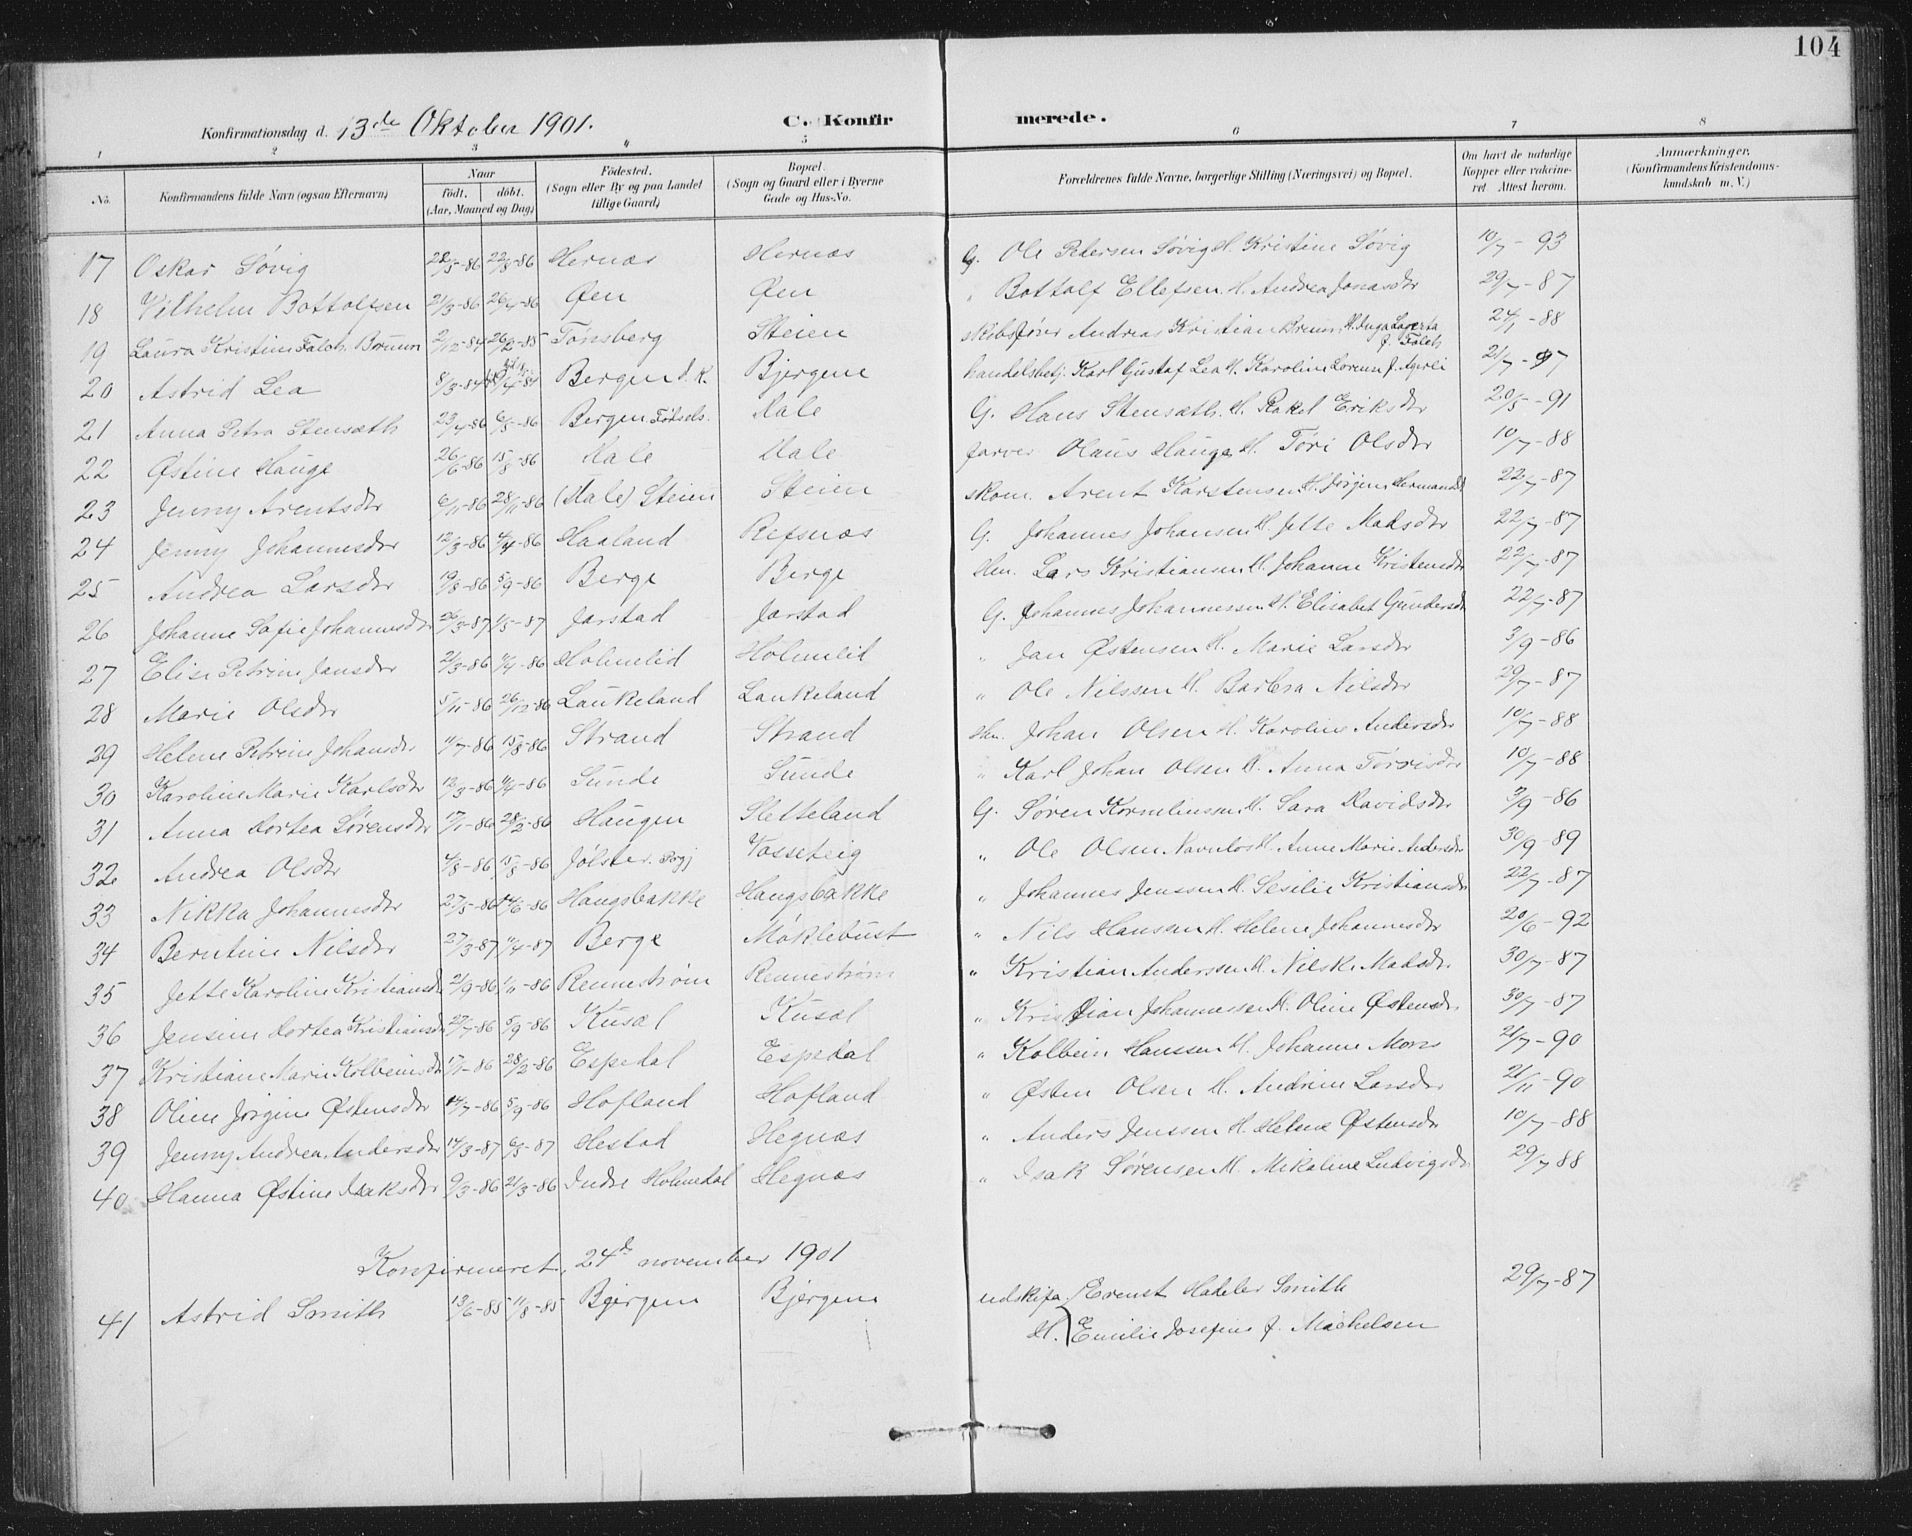 104
Konfirmationsdag d. 13de Oktober 1901. C. Konfirmerede.
1 2 3 4 5 6 7 8
No. Konfirmandens fulde Navn (ogsaa Efternavn) Naar født. døbt. (Aar, Maaned og Dag) Fødested. (Sogn eller By og paa Landet tillige Gaard) Bopæl. (Sogn og Gaard eller i Byerne Gade og Hus-No. Forældrenes fulde Navne, borgerlige Stilling (Næringsvei) og Bopæl. Om havt de naturlige Kopper eller vakcineret Attest herom. Anmærkninger. (Konfirmandens Kristendomskundskab m. V.)
17 Oskar Søvig 22/5-86 22/8-86 Hernæs Hernæs G. Ole Petersen Søvig H. Kristine Søvig 10/7-93
18 Vilhelm Bottolfsen 21/3-86 26/4-86 Øen Øen " Bottolf Ellefsen H. Andrea Jonasdr 29/7-87
19 Laura Kristine Falch Bruun 2/12-84 26/2-85 Tønsberg Steien skibsfører Andreas Kristian Bruun H. Inga Laverta f. Falch 24/1-88
20 Astrid Lea 8/3-84 /4-84 Bergen d. k. Bjergene handelsbetj. Karl Gustaf Lea H. Karoline Lorense f. 21/7-87
21 Anna Petra Stensæth 23/4-86 6/5-86 Bergen Fødsels. Dale G. Hans Stensæth H. Rakel Eriksdr 20/5-91
22 Østine Hauge 26/6-86 15/8-86 Dale Dale farver Olaus Hauge H. Tøri Olsdr 10/7-88
23 Jenny Arentsdr 6/11-86 28/11-86 (Dale) Steien Steien skom. Arent Karstensen H. Jørgine Hermansd 22/7-87
24 Jenny Johannesdr 12/3-86 4/4-86 Haaland Refsnæs G. Johannes Johansen H. Jette Madsdr 22/7-87
25 Andrea Larsdr 19/8-86 5/9-86 Berge Berge Hm. Lars Kristiansen H. Johanne Kristensdr 22/7-87
26 Johanne Sofie Johannesdr 26/3-87 1/5-87 Jarstad Jarstad G. Johannes Johannessen H. Elisabet Gundersdr 22/7-87
27 Elise Petrine Jansdr 21/3-86 11/4-86 Holmelid Holmelid " Jan Østensen H. Marie Larsdr 3/9-86
28 Marie Olsdr 5/11-86 26/12-86 Laukeland Laukeland " Ole Nilssen H. Barbra Nilsdr 29/7-87
29 Helene Petrine Johansdr 11/7-86 15/8-86 Strand Strand Hm. Johan Olsen H. Karoline Andersdr 10/7-88
30 Karoline Marie Karlsdr 12/3-86 11/4-86 Sunde Sunde " Karl Johan Olsen H. Anna Torrisdr 10/7-88
31 Anna Dortea Sørensdr 17/1-86 28/2-86 Haugen Sletteland G. Søren Korneliussen H. Sara Davidsdr 3/9-86
32 Andrea Olsdr 4/8-86 15/8-86 Jølster Vasseteig " Ole Olsen Navnløs H. Anne Marie Andersdr 30/9-89
33 Nikka Johannesdr 27/5-86 14/6-86 Haugsbakke Haugsbakke " Johannes Jenssen H. Sesilie Kristiansdr 22/7-87
34 Berntine Nilsdr 27/3-87 11/4-87 Berge Møklebust " Nils Hansen H. Helene Johannesdr 20/6-92
35 Jette Karoline Kristiansdr 21/9-86 1/11-86 Rennestrøm Rennestrøm " Kristian Anderssen H. Nilske Madsdr 30/7-87
36 Jensine Dortea Kristiansdr 27/7-86 5/9-86 Kusæl Kusæl " Kristian Johannessen H. Oline Østensdr 30/7-87
37 Kristiane Marie Kolbeinsdr 17/1-86 28/2-86 Espedal Espedal " Kolbein Hanssen H. Johanne Mons 21/7-90
38 Oline Jørgine Østensdr 14/7-86 5/9-86 Hofland Hofland " Østen Olsen H. Andrine Larsdr 21/11-90
39 Jenny Andrea Andersdr 14/3-87 6/3-87 Hestad Hegnæs " Anders Jenssen H. Helene Østensdr 10/7-88
40 Hanna Østine Isaksdr 9/3-86 21/3-86 Indre Holmedal Hegnæs " Isak Sørensen H. Mikaline Ludvigsdr 29/7-88
Konfirmeret, 24de november 1901
41 Astrid Smith 13/6-85 11/8-85 Bjergene Bjergene udskifn. Ernst Hadeler Smith 29/7-87
H. Emilie Josefine f. Michelsen